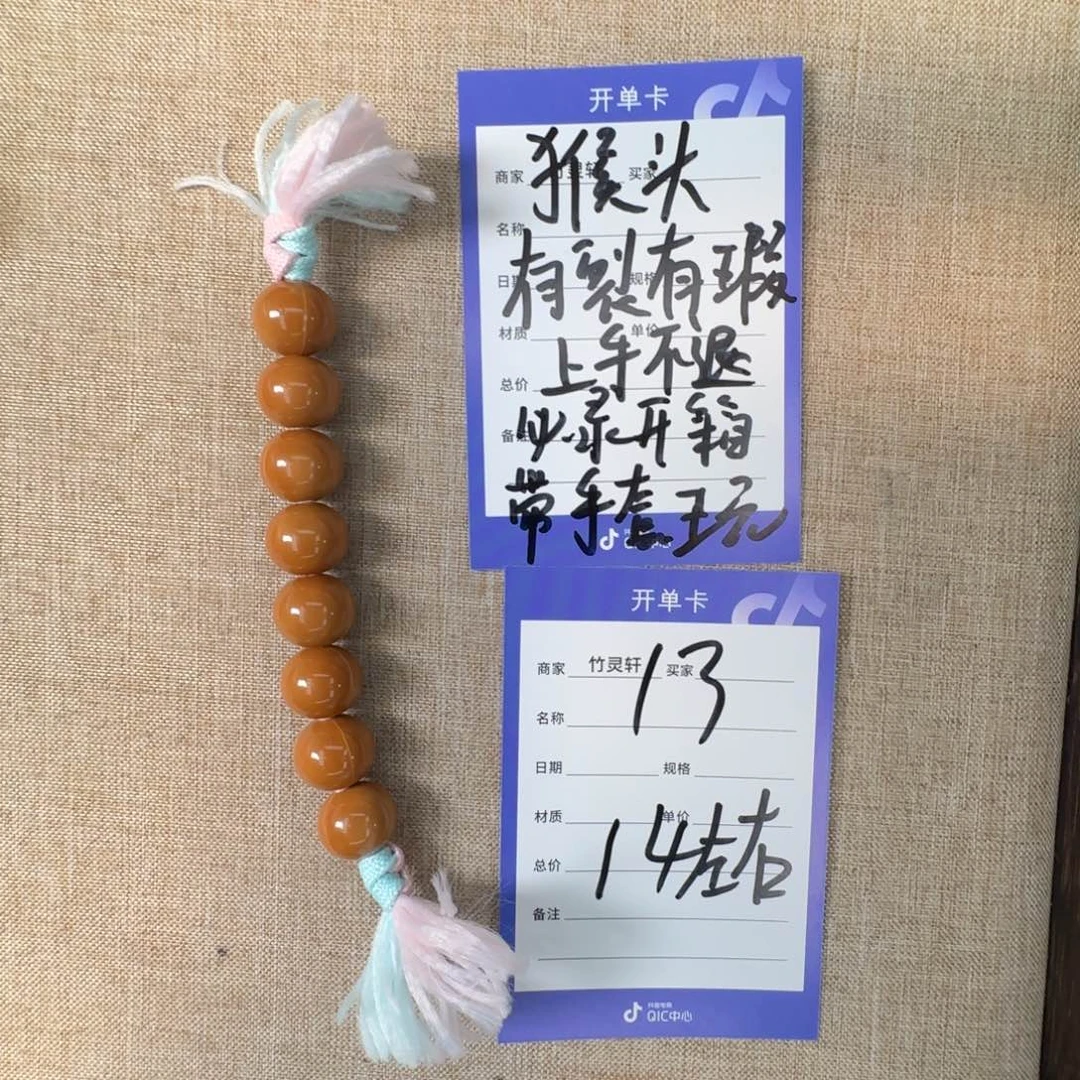 开单卡
猴头
商家 竹灵轩 买家
名称
有裂有瑕
日期 规格
材质 单价
上手不退
总价
必录开箱
备注
带手套玩
QIC中心
开单卡
商家 竹灵轩 买家
13
名称
日期 规格
材质 单价
14左右
总价
备注
抖音电商
QIC中心